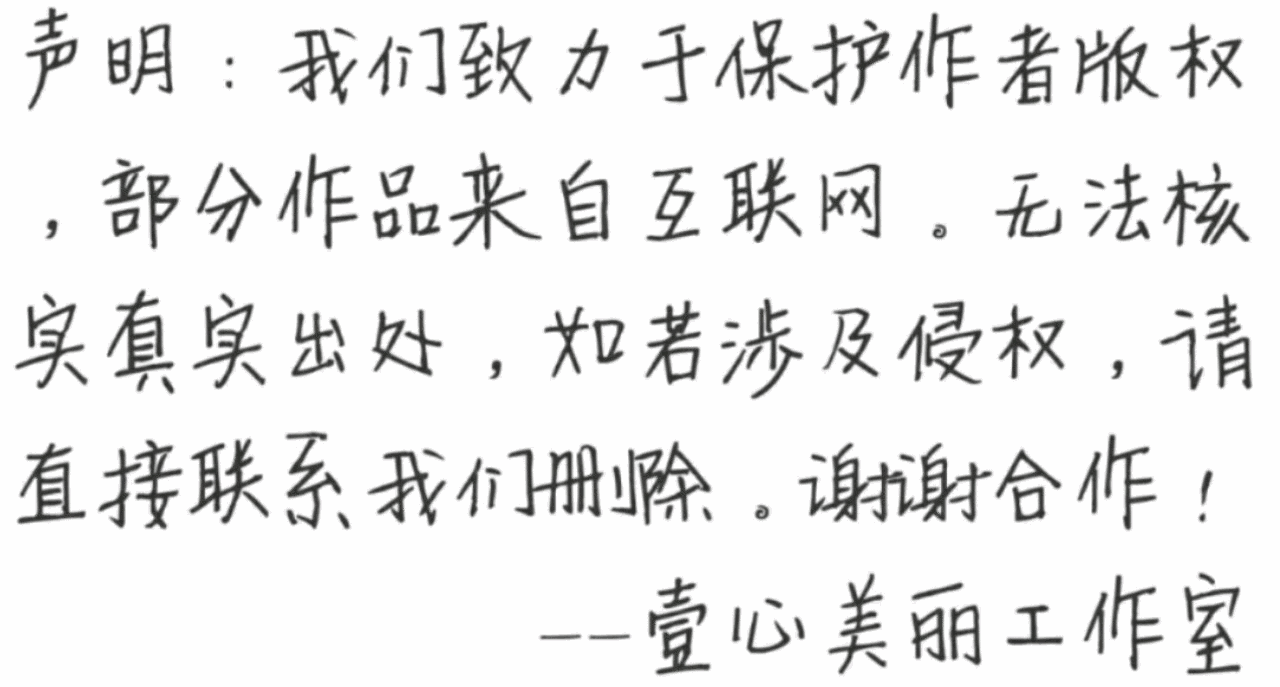 声明：我们致力于保护作者版权
，部分作品来自互联网。无法核
实真实出处，如若涉及侵权，请
直接联系我们删除。谢谢合作！
——壹心美丽工作室